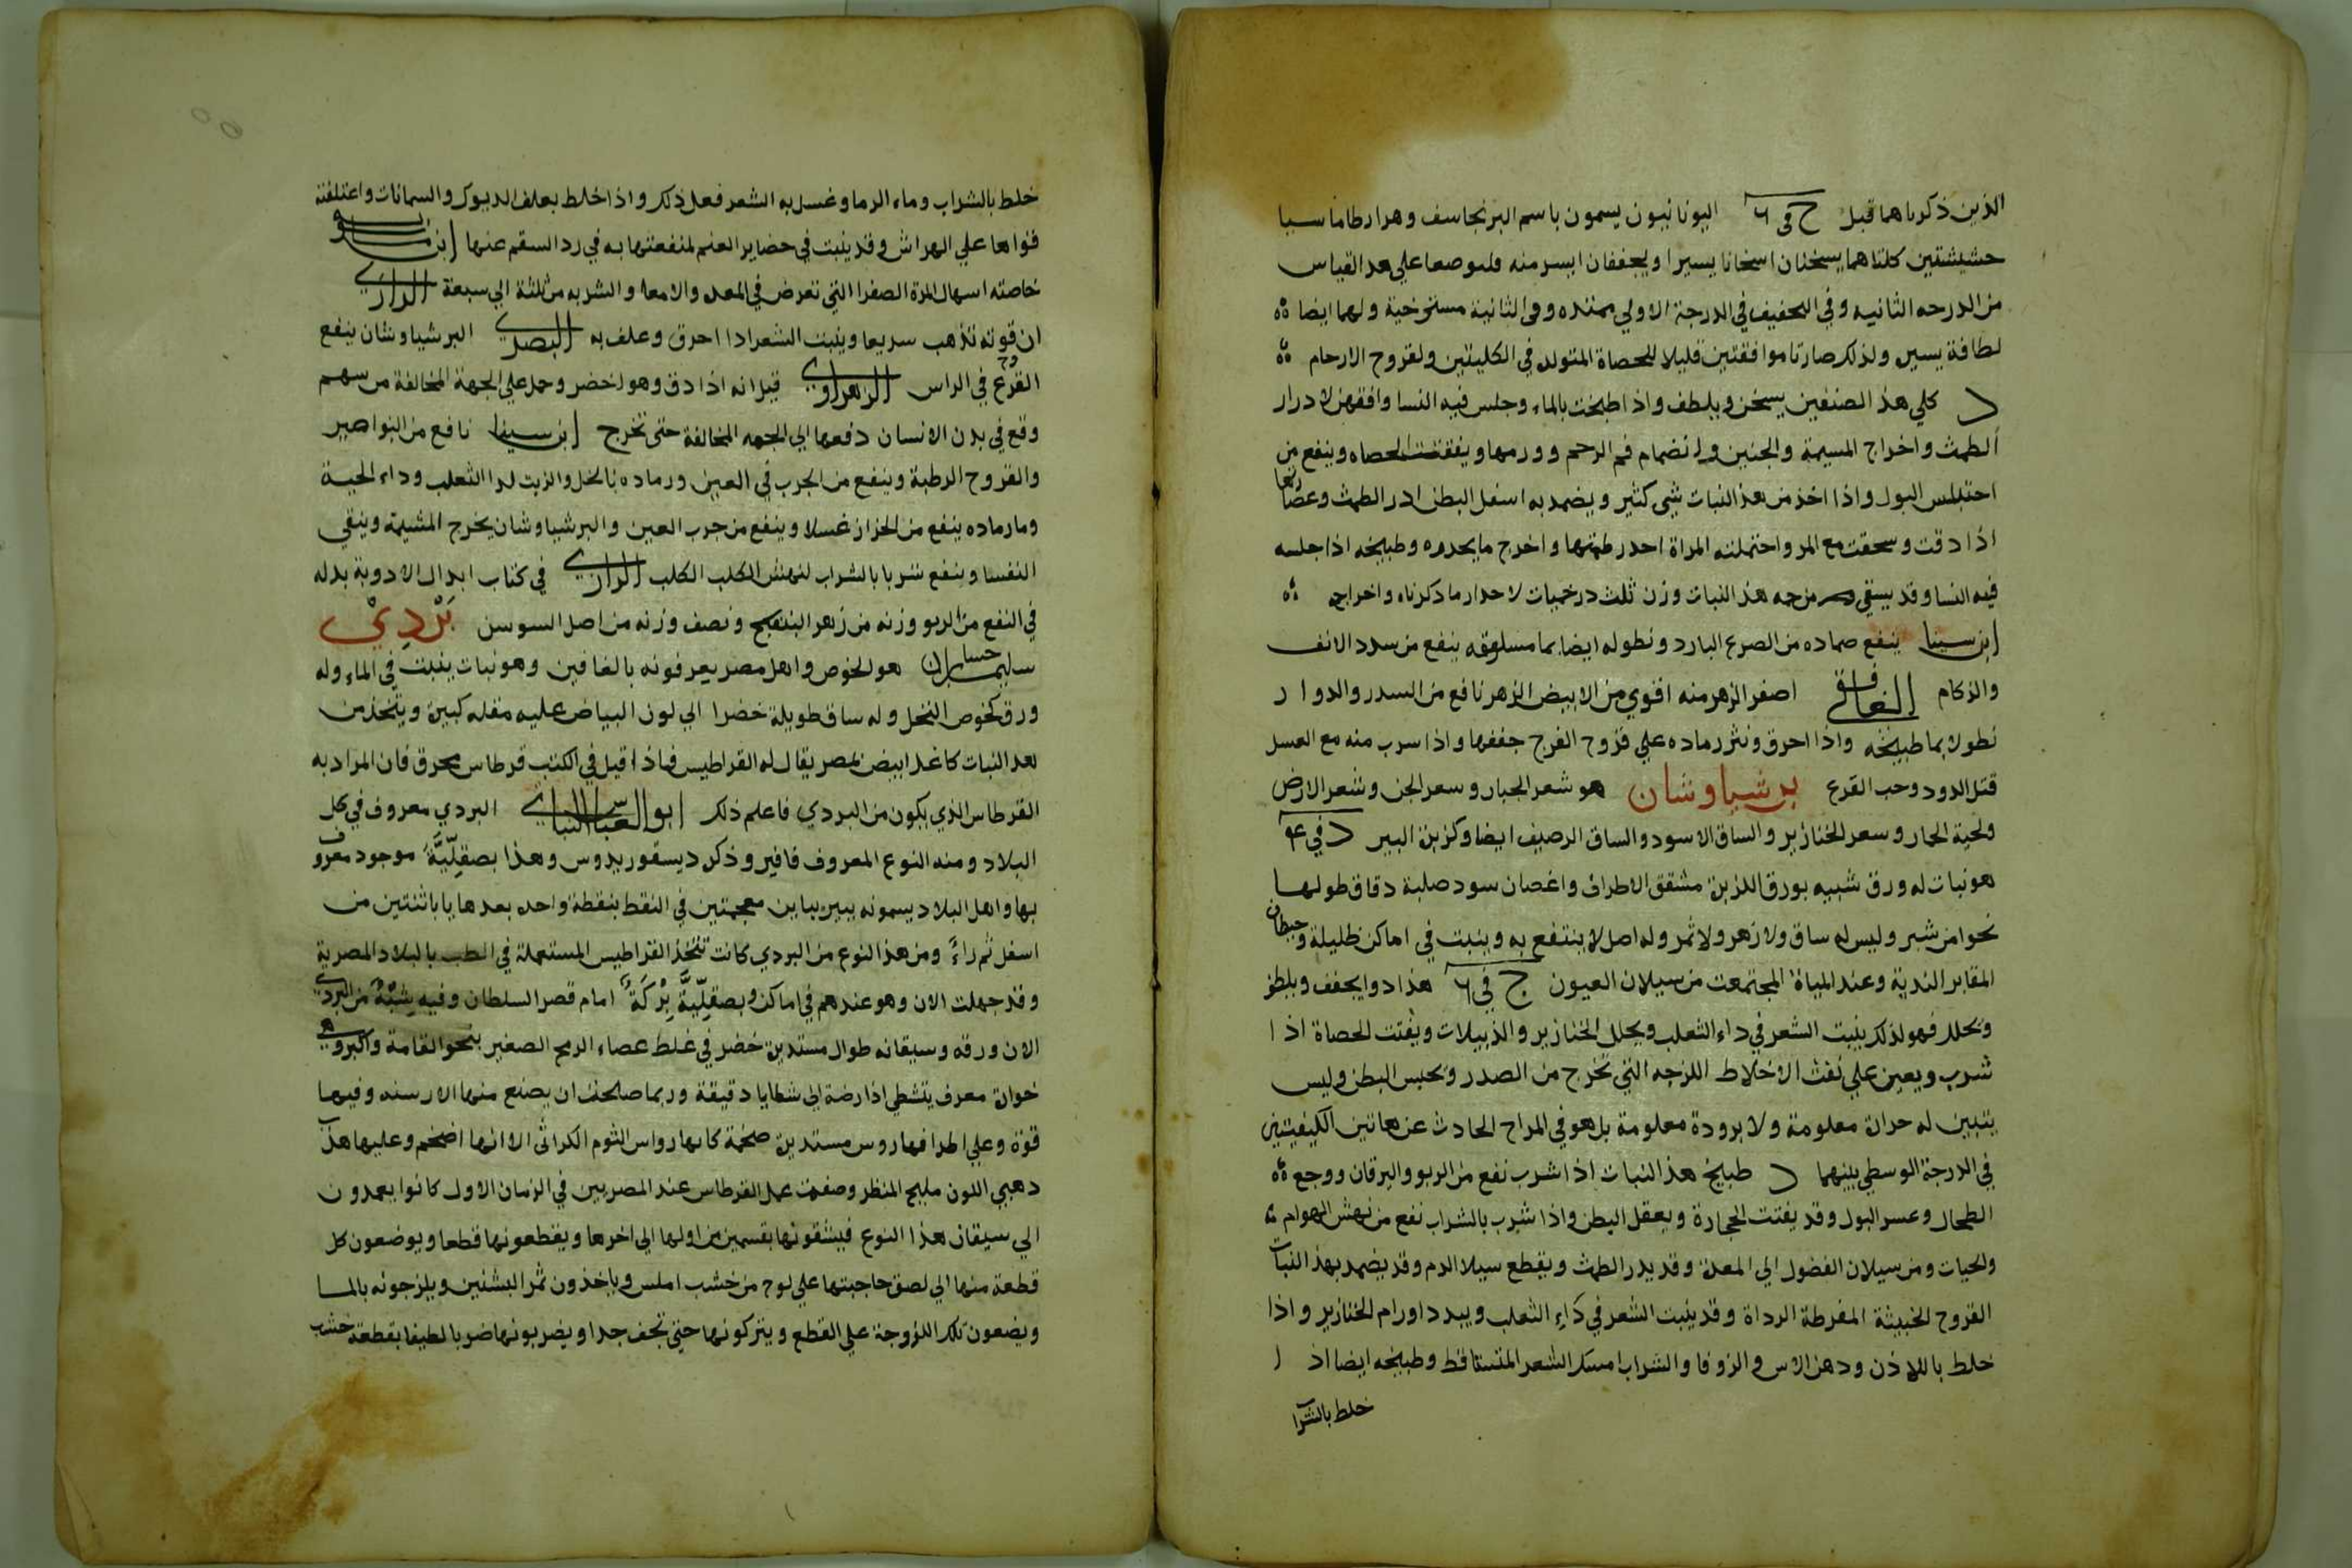 الذين ذكرناهما قبل ج في ٦ اليونانيون يسمون باسم البرنجاسف وهرارطاماسيا
حشيشتين كلتاهما يسخنان اسخانا يسيرا ويجففان ايسر منه فلنوصعا علي هد القياس
من الدرجه الثانيه وفي التجفيف في الدرجة الاولي ممتده وفي الثانية مسترخية ولهما ايضا
لطافة يسير ولذلك صارتا موافقتين قليلا للحصاة المتولد في الكليتين ولقروح الارحام
د كلي هذ الصنفين يسخن ويلطف واذا طبخت بالماء وجلس فيه النسا وافقهن لادرار
الطمث واخراج المسيمة والجنين ولانضمام فم الرحم وورمها ويفتت الحصاه وينفع من
احتباس البول واذا اخذ من هذ النبات شي كثير ويضمد به اسفل البطن ادر الطمث وعصارتها
اذا دقت وسحقت مع المر واحتملته المراة احدر طمثها واخرج ما يحدره وطبيخه اذا جلسه
فيه النسا وقد يسقي من جمه هذ النبات وزن ثلث درخميات لاحدار ما ذكرناه واخراجه
ابن سينا ينفع ضماده من الصرع البارد ونطوله ايضا بما مسلوقه ينفع من سدد الانف
والزكام الغافقي اصفر الزهر منه اقوي من الابيض الزهر نافع من السدر والدوار
نطولا بما طبيخه واذا احرق ونثر رماده علي قروح الفرج جففها واذا سرب منه مع العسل
قتل الدود وحب القرع برشياوشان هو شعر الجبار وسعر الجن وشعر الارض
ولحية الحمار وسعر الخنازير والساق الاسود والساق الرصيف ايضا وكزبرة البير د في ٤
هو نبات له ورق شبيه بورق الكزبرة مشقق الاطراف واغصان سود صلبة دقاق طولها
نحوا من شبر وليس له ساق ولا زهر ولا ثمر وله اصل لا ينتفع به وينبت في اماكن ظليلة وحيطان
المقابر الندية وعند المياة المجتمعت من سيلان العيون ج في ٦ هذا دوا يجفف ويلطف
ويحلل فهو لذلك ينبت الشعر في داء الثعلب ويحلل الخنازير والذبيلات ويفتت الحصاة اذا
شرب ويعين علي نفث الاخلاط اللزجه التي تخرج من الصدر ويحبس البطن وليس
يتبين له حرارة معلومة ولا برودة معلومة بل هو في المزاج الحادث عن هاتين الكيفيتين
في الدرجة الوسطي بينهما د طبيخ هذ النبات اذا شرب نفع من الربو واليرقان ووجع
الطحال وعسر البول وقد يفتت الحجارة ويعقل البطن واذا شرب بالشراب نفع من نهش الهوام
والحيات ومن سيلان الفضول الي المعدة وقد يدر الطمث ويقطع سيلا الدم وقد يضمد بهذ النبات
القروح الخبيثة المفرطة الرداة وقد ينبت الشعر في داء الثعلب ويبدد اورام الخنازير واذا
خلط باللاذن ودهن الاس والزوفا والشراب امسك الشعر المتساقط وطبيخه ايضا اذا
خلط بالشرا
خلط بالشراب وماء الرماد وغسل به الشعر فعل ذلك واذا خلط بعلف الديوك والسمانات واعتلفته
قواها علي الهراش وقد ينبت في حضاير الغنم لمنفعتها به في رد السقم عنها ابن
خاصته اسهال المرة الصفرا التي تعرض في المعده والامعا والشربه من ثلثة الي سبعة الرازي
ان قوته تذهب سريعا وينبت الشعر اذا احرق وعلف به البصري البرشياوشان ينفع
القروح في الراس الزهراوي قيل انه اذا دق وهو اخضر وحمل علي الجهة المخالفة من سهم
وقع في بدن الانسان دفعها الي الجهه المخالفة حتي تخرج ابن سينا نافع من النواصير
والقروح الرطبة وينفع من الجرب في العين ورماده بالخل والزيت لدا الثعلب وداء الحية
وما رماده ينفع من الحزاز غسلا وينفع من جرب العين والبرشياوشان يخرج المشيمة وينقي
النفسا وينفع شربا بالشراب لنهش الكلب الكلب الرازي في كتاب ابدال الادوية بدله
في النفع من الربو وزنه من زهر البنفسج ونصف وزنه من اصل السوسن بردي
سليم حسان هو الخوص واهل مصر يعرفونه بالغافين وهو نبات ينبت في الماء وله
ورق كخوص النخل وله ساق طويلة خضرا الي لون البياض عليه مفله كبيرة ويتخذ من
هد النبات كاغد ابيض بمصر يقال له القراطيس فاذا قيل في الكتب قرطاس محرق فان المراد به
القرطاس الذي يكون من البردي فاعلم ذلك ابو العباس النباتي البردي معروف في كل
البلاد ومنه النوع المعروف فافير وذكره ديسقوريدوس وهذا بصقلية موجود معروف
بها واهل البلاد يسمونه ببير بباين معجمتين في النقط بنقطة واحده بعدها ياباثنتين من
اسفل ثم راء ومن هذ النوع من البردي كانت تتخذ القراطيس المستعملة في الطب بالبلاد المصرية
وقد جهلت الان وهو عندهم في اماكن وبصقلية بركة امام قصر السلطان وفيه شبه من البردي
الان ورقه وسيقانه طوال مستديرة خضر في غلظ عصاء الرمح الصغير بنحو القامة واكبر وهي
خوارة معرف يتشظي اذا رضه الي شظايا دقيقة وربما صلحت ان يصنع منها الارسنه وفيها
قوة وعلي اطرافها روس مستديرة ضخمة كانها رواس الثوم الكراثي الا انها اضخم وعليها هذب
دهبي اللون مليح المنظر وصفة عمل القرطاس عند المصريين في الزمان الاول كانوا يعمدون
الي سيقان هذا النوع فيشقونها بقسمين من اولها الي اخرها ويقطعونها قطعا ويوضعون كل
قطعة منها الي لصق حاجبتها علي لوح من خشب املس وياخذون ثمر البشنين ويلزجونه بالما
ويضعون تلك اللزوجة علي القطع ويتركونها حتي تجف جدا ويضربونها ضربا لطيفا بقطعة خشب